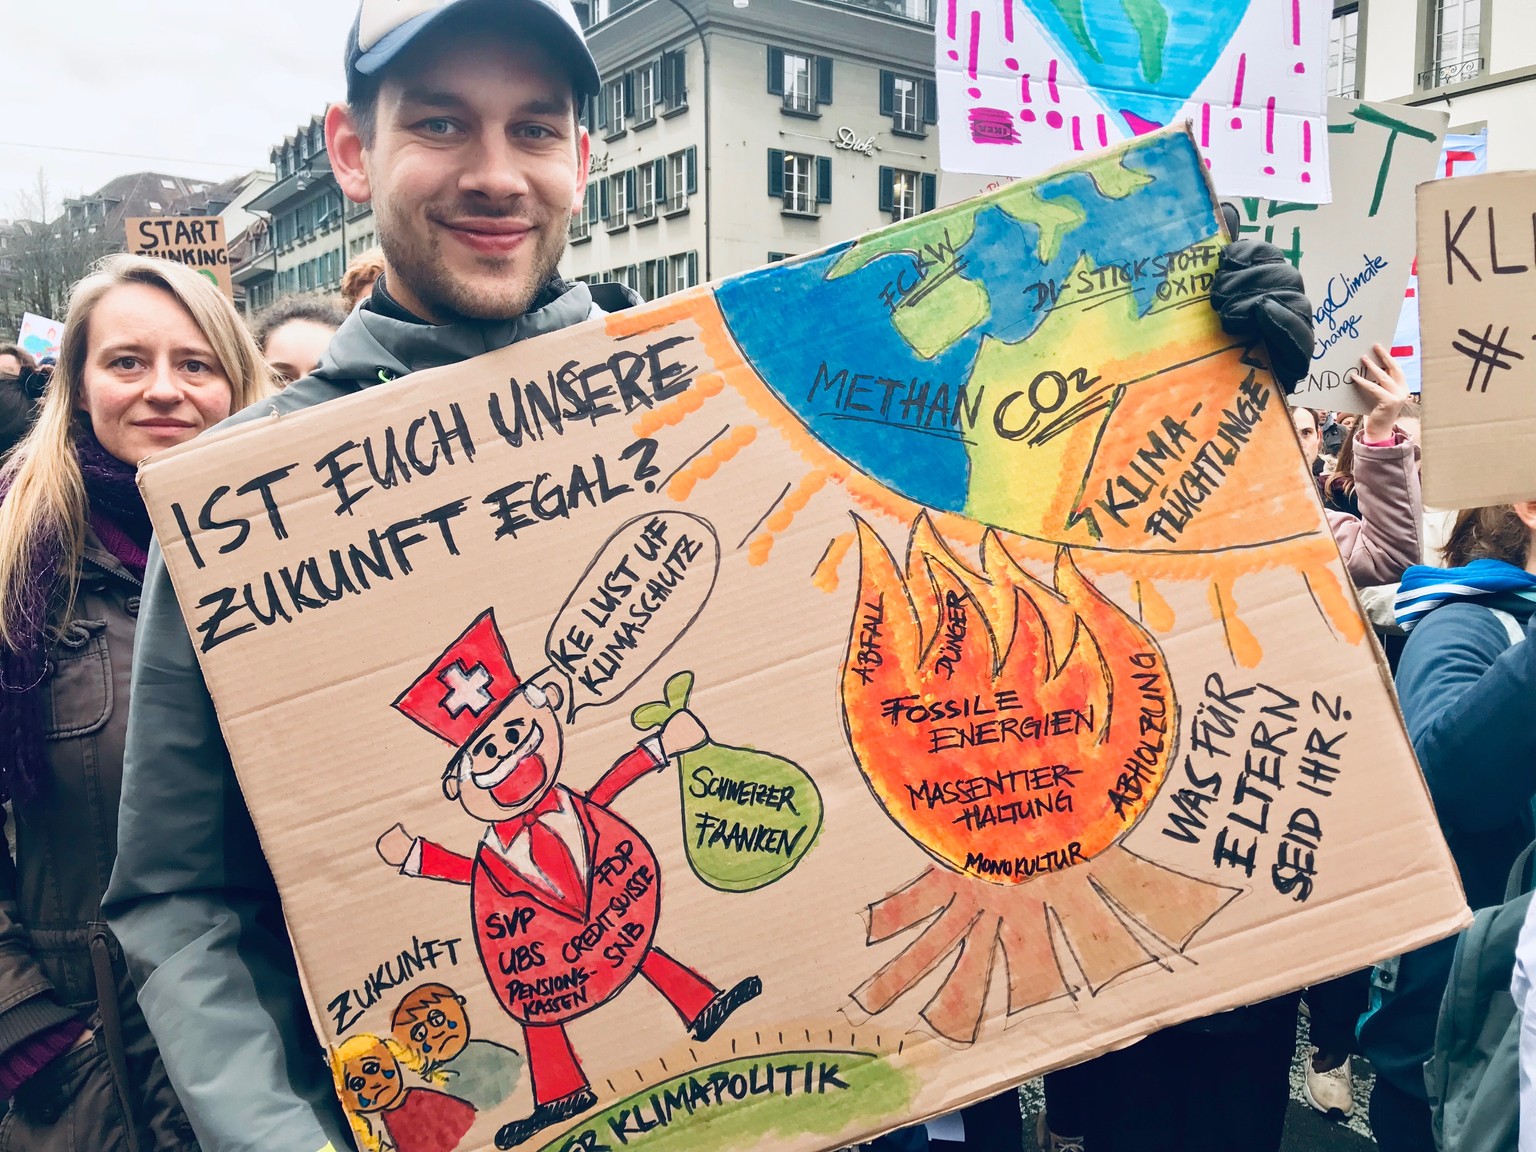 START
THINKING
Dick
IKEA
IST EUCH UNSERE
ZUKUNFT EGAL?
KE LUST UF
KLIMASCHUTZ
SCHWEIZER
FRANKEN
SVP
UBS
PENSIONS-
KASSEN
FDP
CREDIT SUISSE
SNB
ZUKUNFT
ER KLIMAPOLITIK
FCKW
DI-STICKSTOFF-
OXID
METHAN
CO2
KLIMA-
FLÜCHTLINGE
ABFALL
DÜNGER
FOSSILE
ENERGIEN
MASSENTIER-
HALTUNG
ABHOLZUNG
MONOKULTUR
WAS FÜR
ELTERN
SEID IHR?
Climate
Change
KLI
#